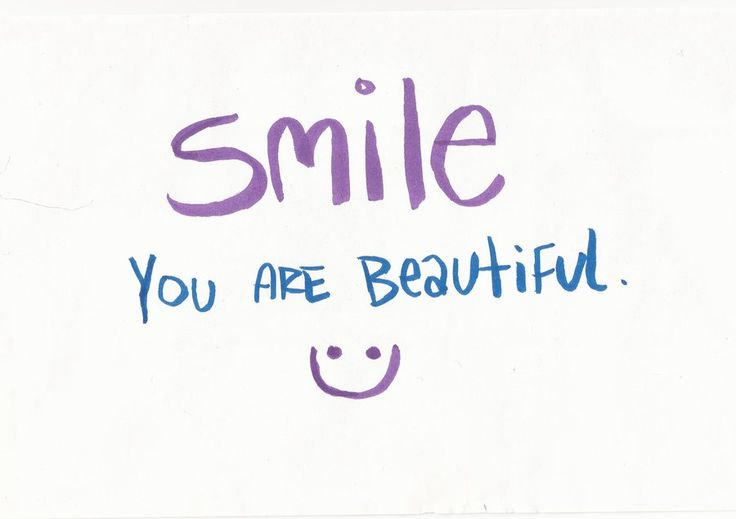 smile
You ARE Beautiful.